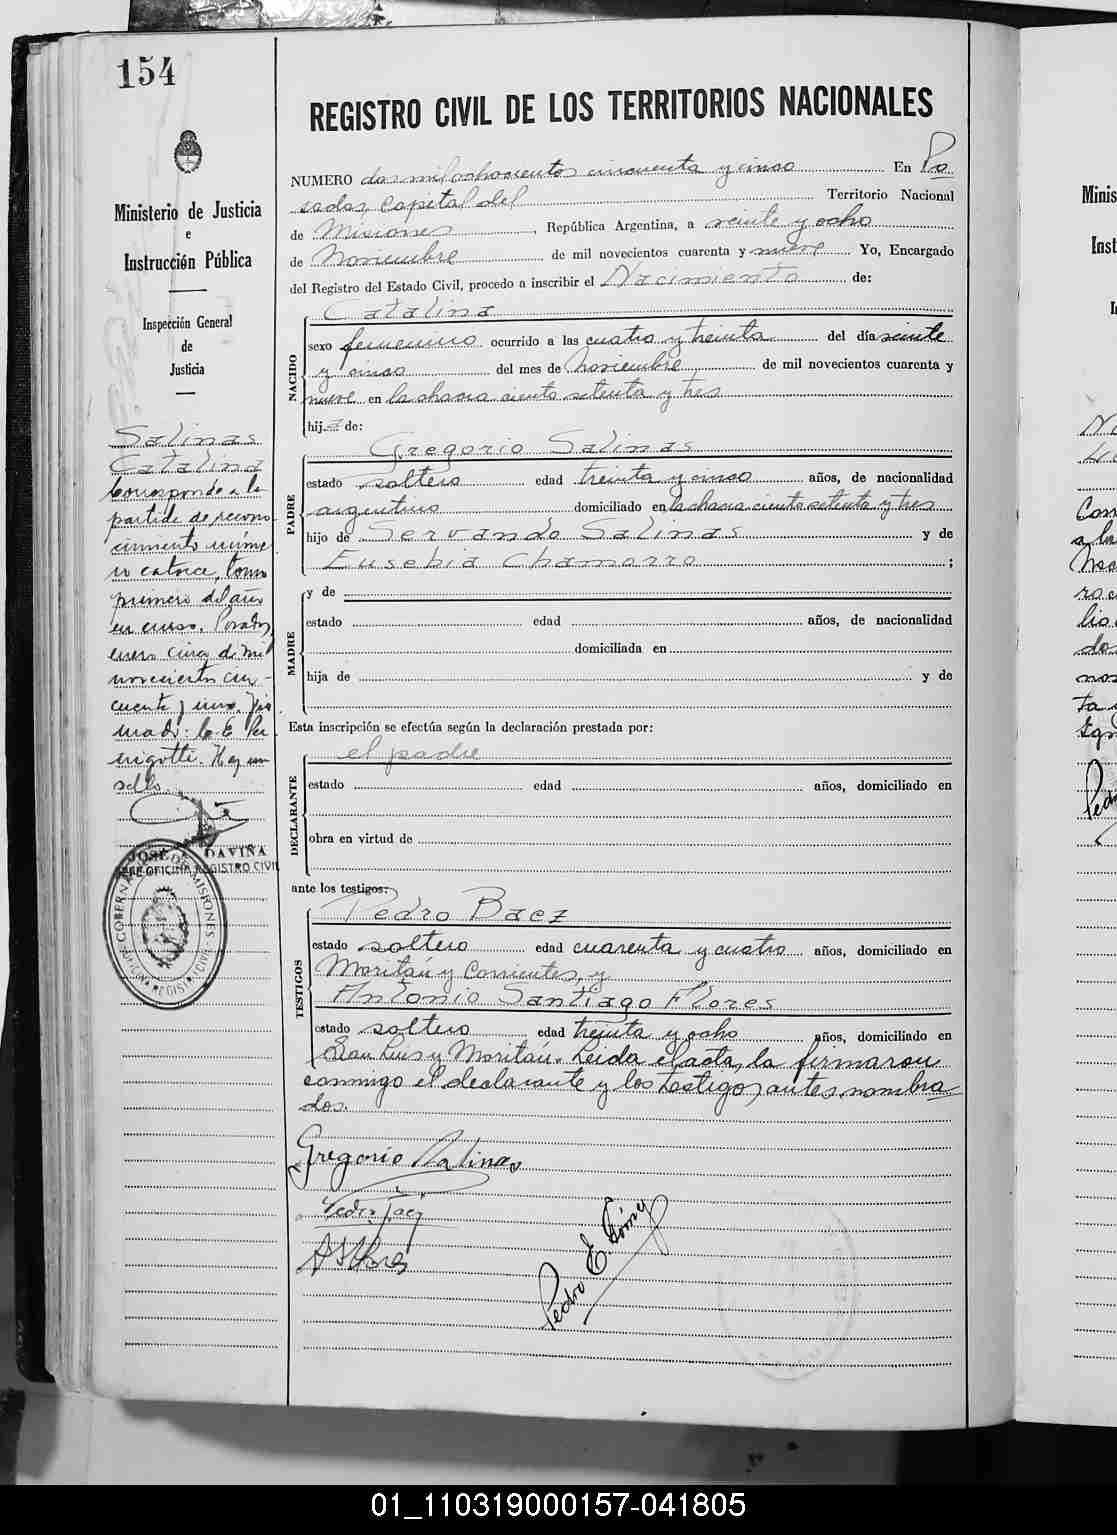 154
Ministerio de Justicia
e
Instrucción Pública
Inspección General
de
Justicia
Salinas
Catalina
Corresponde a la
partida de recono-
cimiento núme
ro catorce, tomo
primero del año
en curso. Posadas,
enero cinco de mil
novecientos cin-
cuenta y uno. Fir
mado: C. E. Pe
rigotti. Hay un
sello.
JOSE DAVIÑA
JEFE OFICINA REGISTRO CIVIL
GOBERNACION DE MISIONES
OFICINA REGISTRO CIVIL
REGISTRO CIVIL DE LOS TERRITORIOS NACIONALES
NUMERO dos mil ochocientos cincuenta y cinco En Po
sadas, Capital del Territorio Nacional
de Misiones, República Argentina, a veinte y ocho
de Noviembre de mil novecientos cuarenta y nueve Yo, Encargado
del Registro del Estado Civil, procedo a inscribir el Nacimiento de:
Catalina
NACIDO
sexo femenino ocurrido a las cuatro y treinta del día veinte
y cinco del mes de Noviembre de mil novecientos cuarenta y
nueve en la chacra ciento setenta y tres
hija de:
Gregorio Salinas
PADRE
estado soltero edad treinta y cinco años, de nacionalidad
argentino domiciliado en la chacra ciento setenta y tres
hijo de Servando Salinas y de
Eusebia Chamorro ;
y de
MADRE
estado edad años, de nacionalidad
domiciliada en
hija de y de
Esta inscripción se efectúa según la declaración prestada por:
el padre
DECLARANTE
estado edad años, domiciliado en
obra en virtud de
ante los testigos:
Pedro Baez
TESTIGOS
estado soltero edad cuarenta y cuatro años, domiciliado en
Moritán y Corrientes, y
Antonio Santiago Flores
estado soltero edad treinta y ocho años, domiciliado en
San Luis y Moritán. Leída el acta, la firmaron
conmigo el declarante y los testigos antes nombra
dos.
Gregorio Salinas
Pedro Baez
A S Flores
Pedro E Gómez
Minis
Inst
01_110319000157-041805